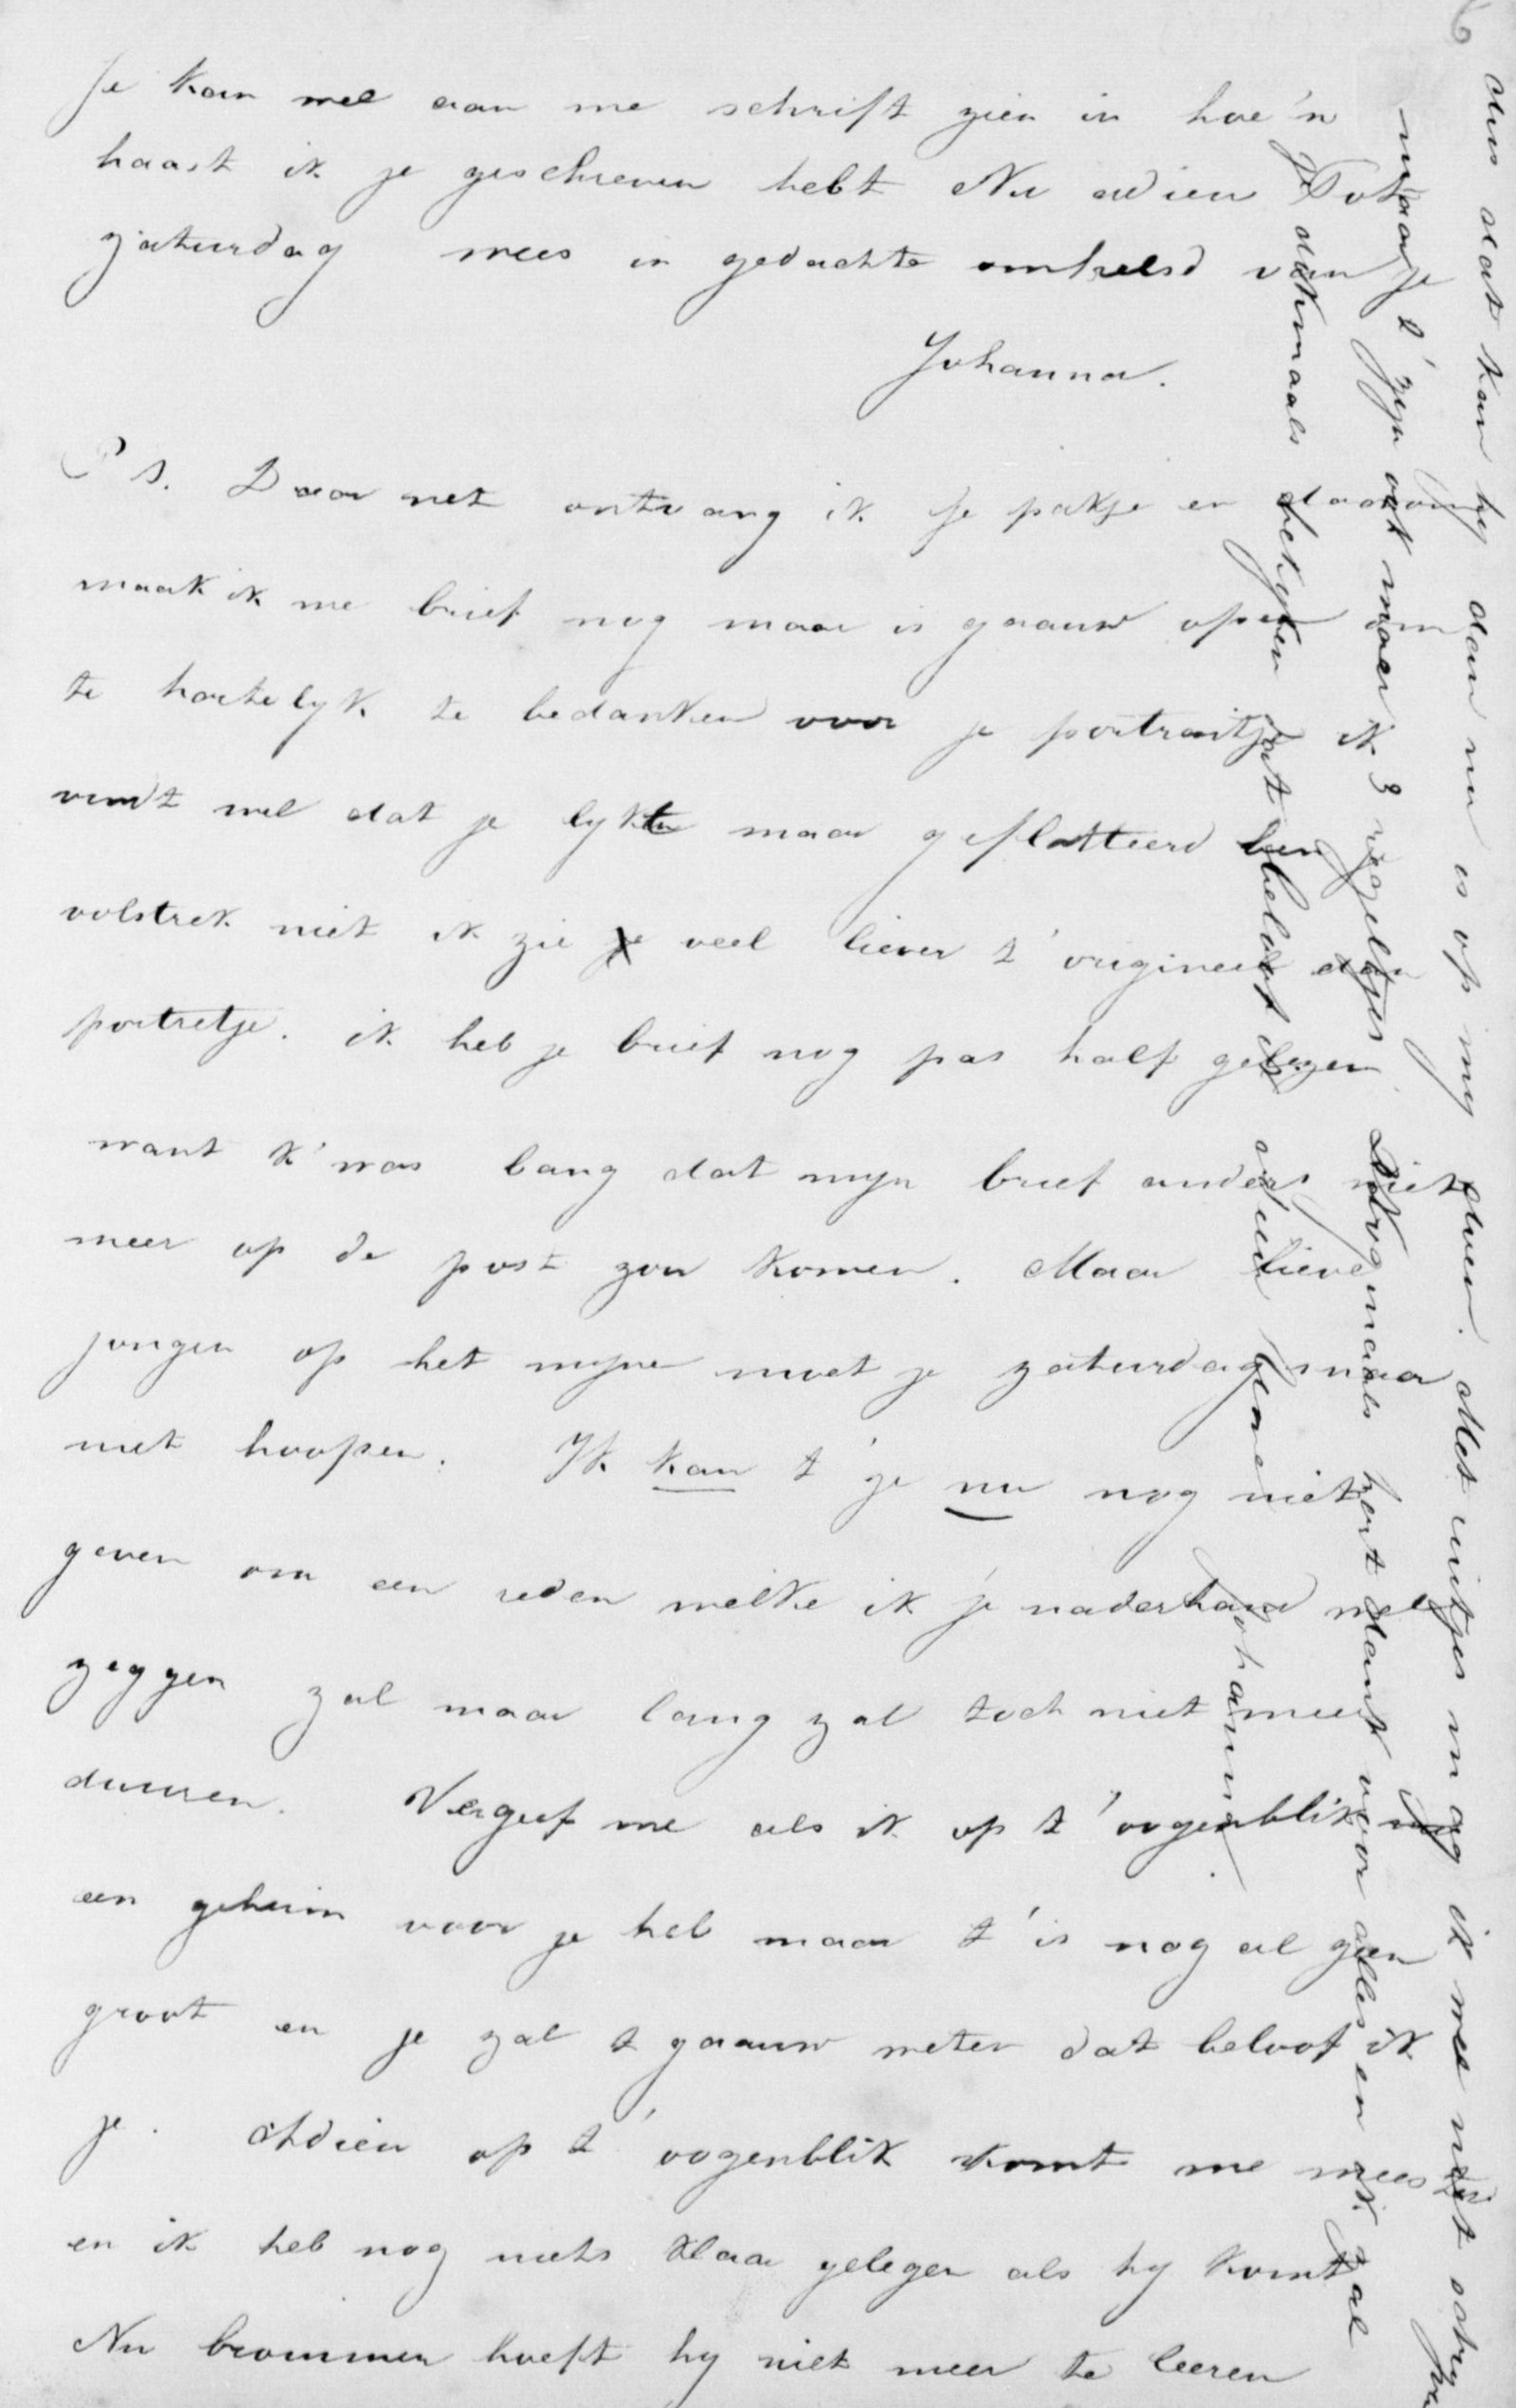 Je kan wel aan me schrift zien in hoe'n
haast ik je geschreven hebt Nu adieu Tot
zaturdag wees in gedachte omhelsd van je
Johanna.
P S. Daar net ontvang ik je pakje en daarom
maak ik me brief nog maar is gaauw open om
te hartelyk te bedanken voor je portraitje ik
vindt wel dat je lykt maar geflatteerd ben
volstrek niet ik zie je veel liever t' origineel dan
portretje. ik heb je brief nog pas half gelezen
want k' was bang dat myn brief anders niet
meer op de post zou komen. Maar lieve
jongen op het myne moet je zaturdag maar
niet hoopen. Ik kan t' je nu nog niet
geven om een reden welke ik je naderhand wel
zeggen zal maar lang zal toch niet meer
duuren. Vergeef me als ik op t' oogenblik nog
een geheim voor je heb maar t' is nog al geen
groot en je zal t gaauw weten dat beloof ik
je. Adieu op t' oogenblik komt me meester
en ik heb nog niets klaar gelegen als hy komt
Nu brommen hoeft hy niet meer te leeren
dus dat kan hy dan nu is op my doen. Met witjes mag ik wel niet
maar je t' zyn ook maar 3 regeltjes Nogmaals hart dank voor alles en ik zal
je nogmaals bekyken dat beloof ik adieu
Johanna.